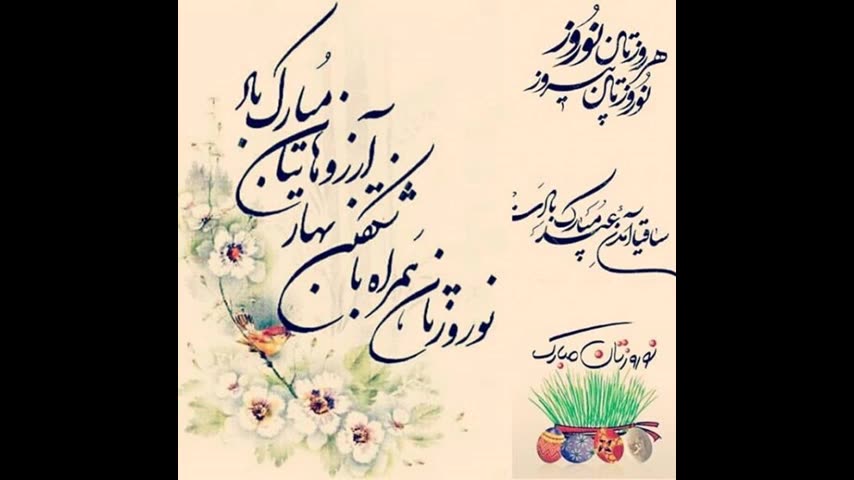 هر روزتان نوروز
نوروزتان پیروز
مبارک باد
آرزوهایتان
شکفتن بهار
نوروزتان همراه با
ساقیا آمدن عید مبارک بادت
نوروزتان مبارک